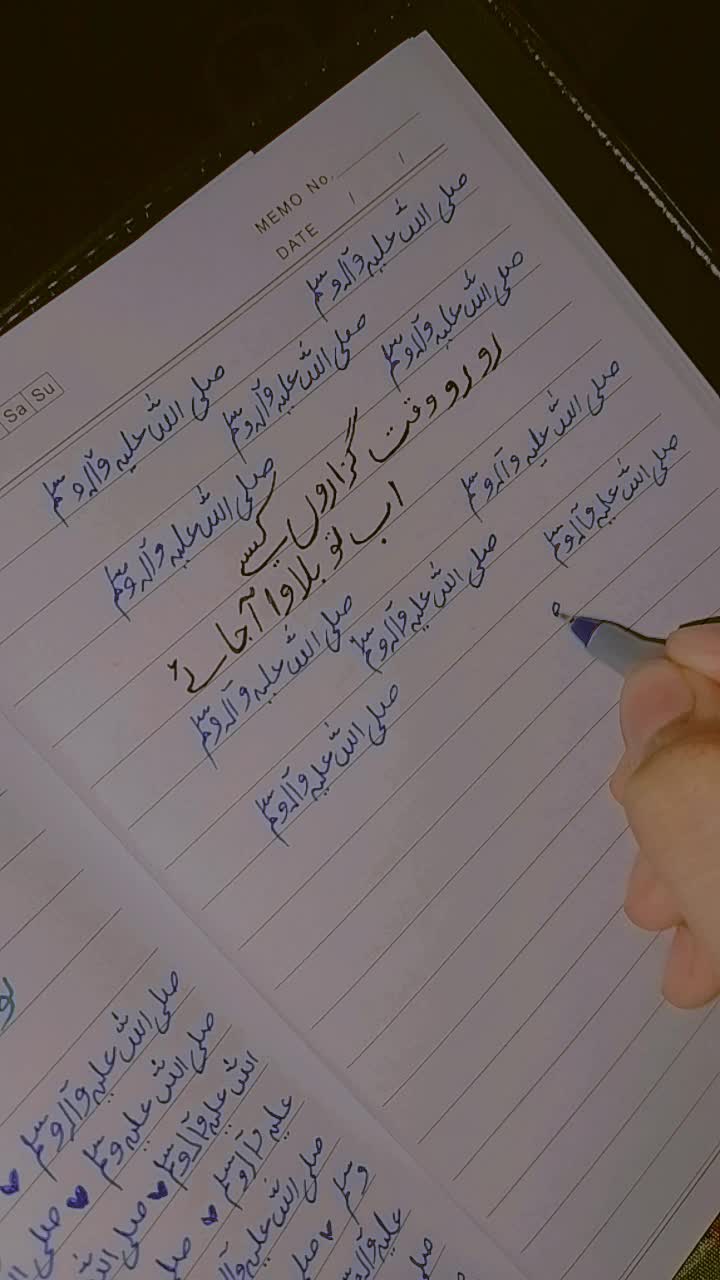 MEMO No.
DATE / /
Sa Su
صلی اللہ علیہ وآلہ وسلم
صلی اللہ علیہ وآلہ وسلم
صلی اللہ علیہ وآلہ وسلم
صلی اللہ علیہ وآلہ وسلم
رو رو وقت گزاروں کیسے
صلی اللہ علیہ وآلہ وسلم
صلی اللہ علیہ وآلہ وسلم
اب تو بلاوا آجائے
صلی اللہ علیہ وآلہ وسلم
صلی اللہ علیہ وآلہ وسلم
صلی اللہ علیہ وآلہ وسلم
صلی اللہ علیہ وآلہ وسلم
صلی اللہ علیہ وآلہ وسلم
صلی اللہ علیہ وسلم
اللہ علیہ وآلہ وسلم
علیہ وآلہ وسلم
صلی اللہ علیہ
وسلم
علیہ وآلہ